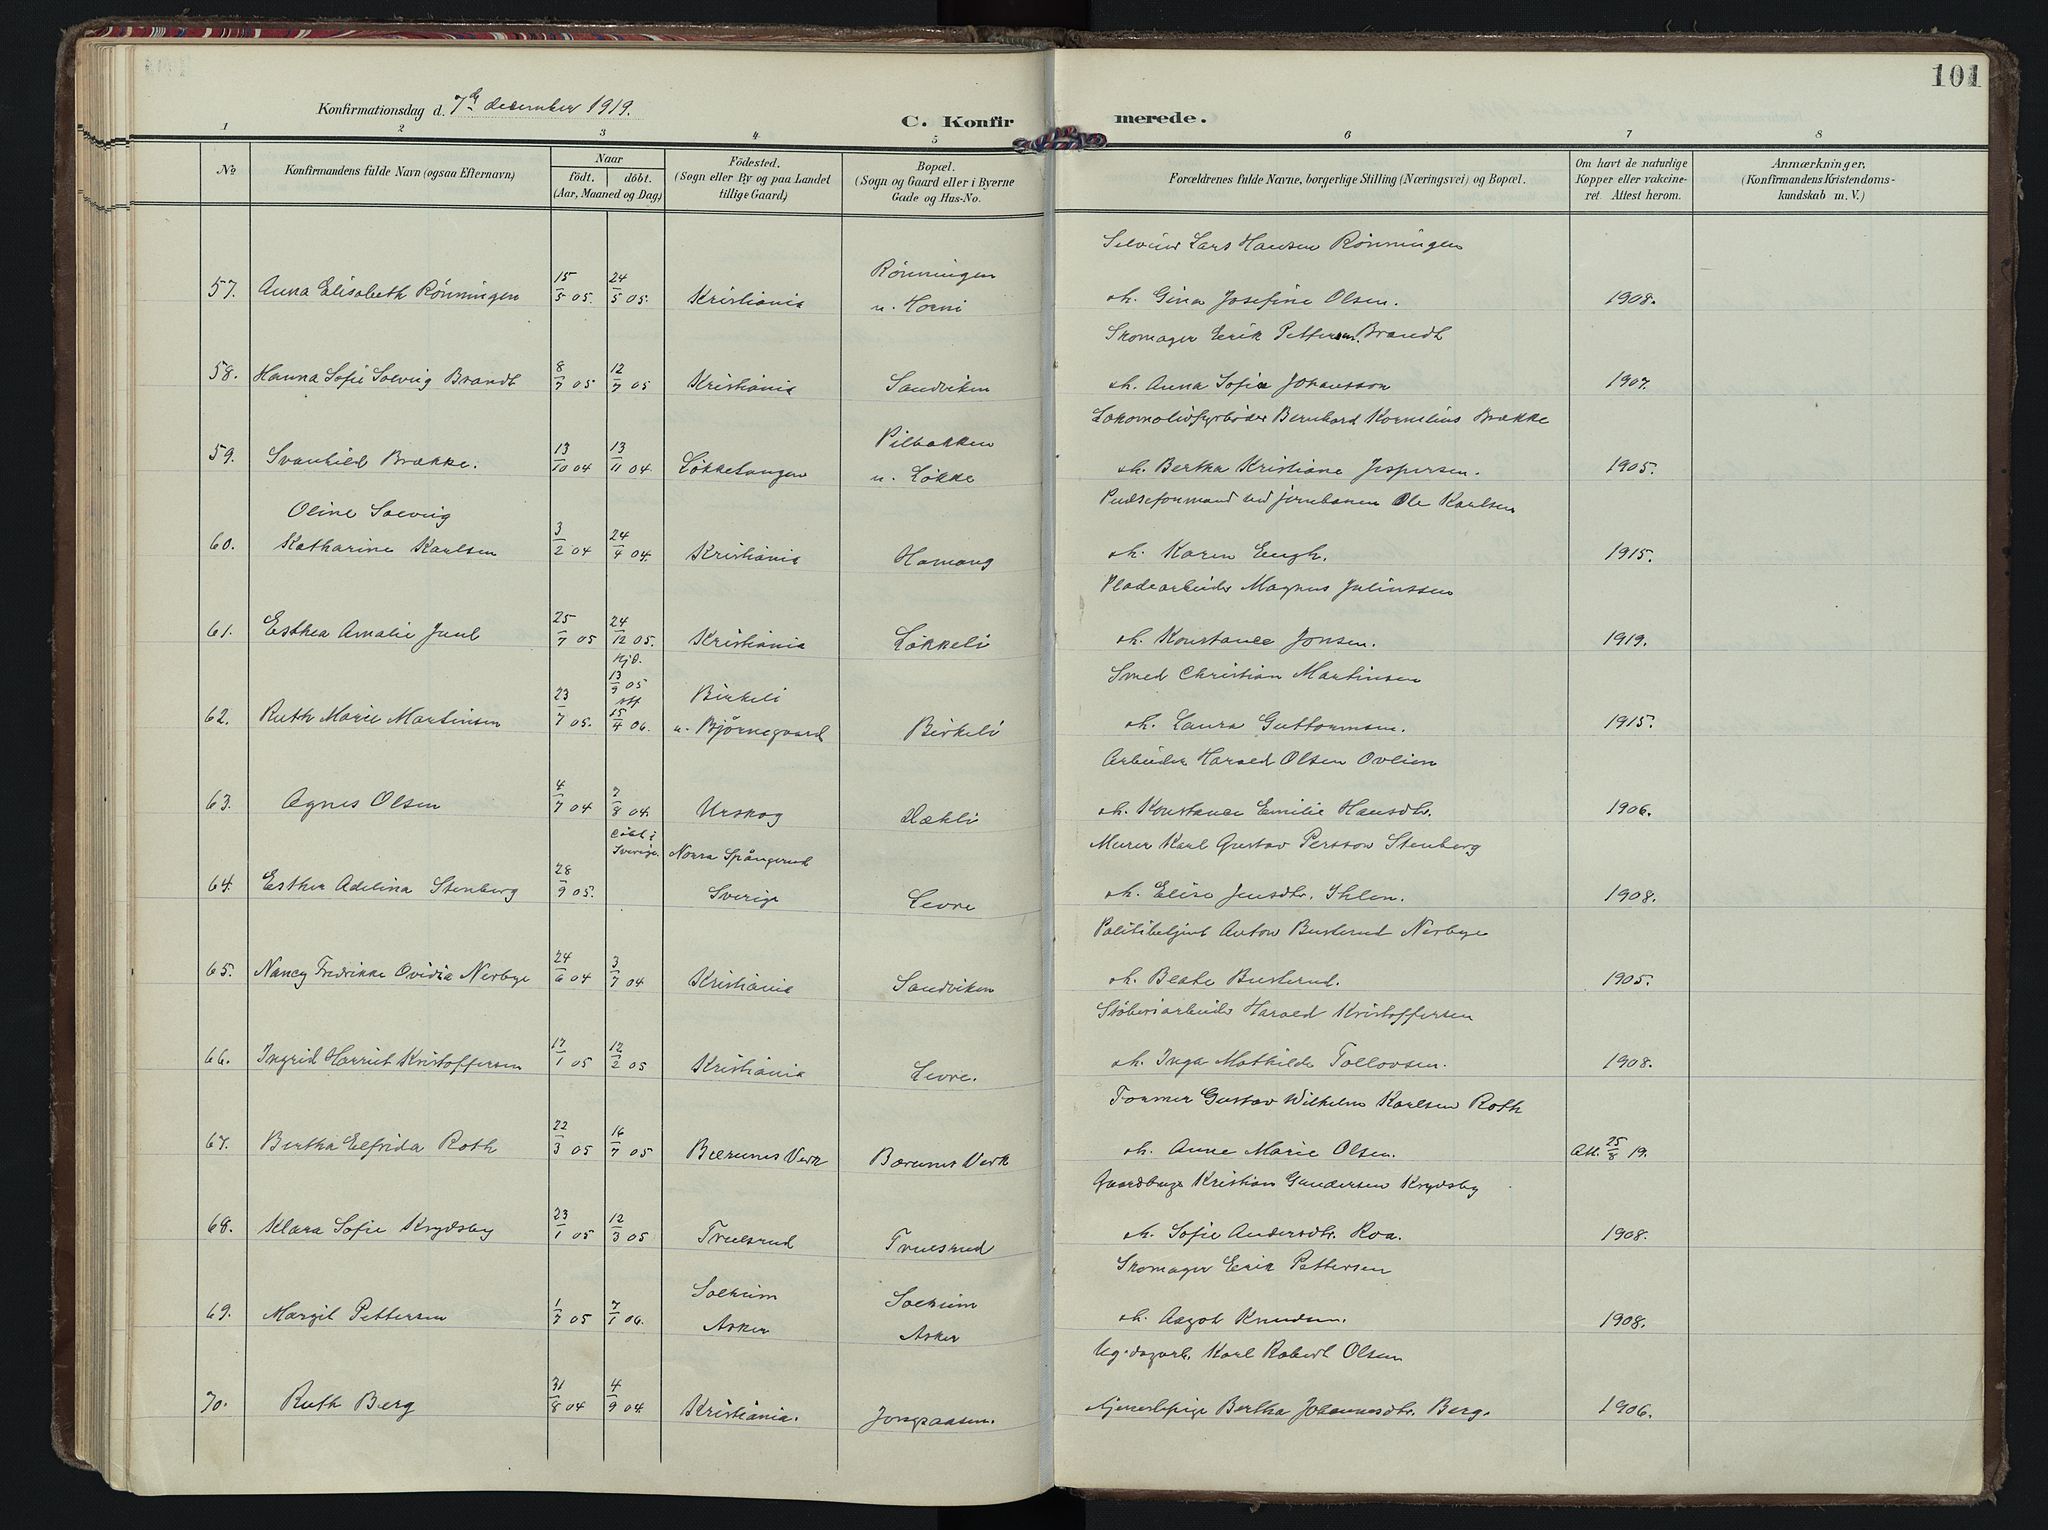 101
Konfirmationsdag d. 7de december 1919.
C. Konfirmerede.
1 2 3 4 5 6 7 8
No
Konfirmandens fulde Navn (ogsaa Efternavn)
Naar
födt. döbt.
(Aar, Maaned og Dag)
Födested.
(Sogn eller By og paa Landet
tillige Gaard)
Bopæl.
(Sogn og Gaard eller i Byerne
Gade og Hus-No.
Forældrenes fulde Navne, borgerlige Stilling (Næringsvei) og Bopæl.
Om havt de naturlige
Kopper eller vakcine-
ret. Attest herom.
Anmærkninger.
(Konfirmandens Kristendoms-
kundskab m. V.)
Selveier Lars Hansen Rönningen
57. Anna Elisabeth Rönningen 15/5 05. 24/5 05. Kristiania Rönningen u. Horni
o.h. Gina Josefine Olsen. 1908.
Skomager Erik Pettersen Brandt
58. Hanna Sofie Solveig Brandt 8/7 05 12/7 05 Kristiania Sandviken
o.h. Anna Sofie Johansson 1907.
Lokomotivfyrböder Bernhard Kornelius Brække
59. Svanhild Brække. 13/10 04 13/11 04. Lökketangen Pilbakken u. Lökke
o.h. Bertha Kristiane Jespersen. 1905.
Pudseformand ved jernbanen Ole Karlsen
60. Oline Solveig Katharine Karlsen 3/2 04 24/4 04. Kristiania Hamang
o.h. Karen Engh. 1915.
Pladearbeider Magnus Julinssen
61. Esthea Amalie Juul 25/7 05 24/12 05. Kristiania Lökkeli
o.h. Konstance Jonsen. 1919.
Smed Christian Martinsen
62. Ruth Marie Martinsen 23/7 05. Hjd. 13/9 05 stf 15/4 06. Birkeli u. Bjørnegaard Birkeli
o.h. Laura Guttormsen. 1915.
Arbeider Harald Olsen Ovlien
63. Agnes Olsen 4/7 04 7/8 04. Urskog Dækli
o.h. Konstance Emilie Hansdtr. 1906.
Murer Karl Gustav Persson Stenberg
64. Esther Adelina Stenberg 28/9 05. Döbt i Sverige. Norra Spångerud Sverige Levre
o.h. Elise Jensdtr. Ihlen. 1908.
Politibetjent Anton Busterud Nerbye
65. Nancy Fredrikke Ovidia Nerbye 24/6 04 3/7 04 Kristiania Sandviken
o.h. Beate Busterud. 1905.
Støberiarbeider Harald Kristoffersen
66. Ingrid Harriet Kristoffersen 17/1 05 12/2 05 Kristiania Levre.
o.h. Inga Mathilde Tollovsen. 1908.
Former Gustav Wilhelm Karlsen Roth
67. Bertha Elfrida Roth 22/3 05 16/7 05 Bærums Verk Bærums Verk
o.h. Anne Marie Olsen. Att. 25/8 19.
Gaardbruger Kristian Gundersen Krydsby
68. Klara Sofie Krydsby 23/1 05 12/3 05 Truelsrud Truelsrud
o.h. Sofie Andersdtr. Roa. 1908.
Skomager Erik Pettersen
69. Margit Pettersen 1/7 05 7/1 06. Solheim Asker Solheim Asker
o.h. Aagot Knudsen. 1908.
Ug. dagarb. Karl Robert Olsen
70. Ruth Berg 31/8 04 4/9 04. Kristiania. Jongsaasen.
tjenestepige Bertha Johannesdtr. Berg. 1906.